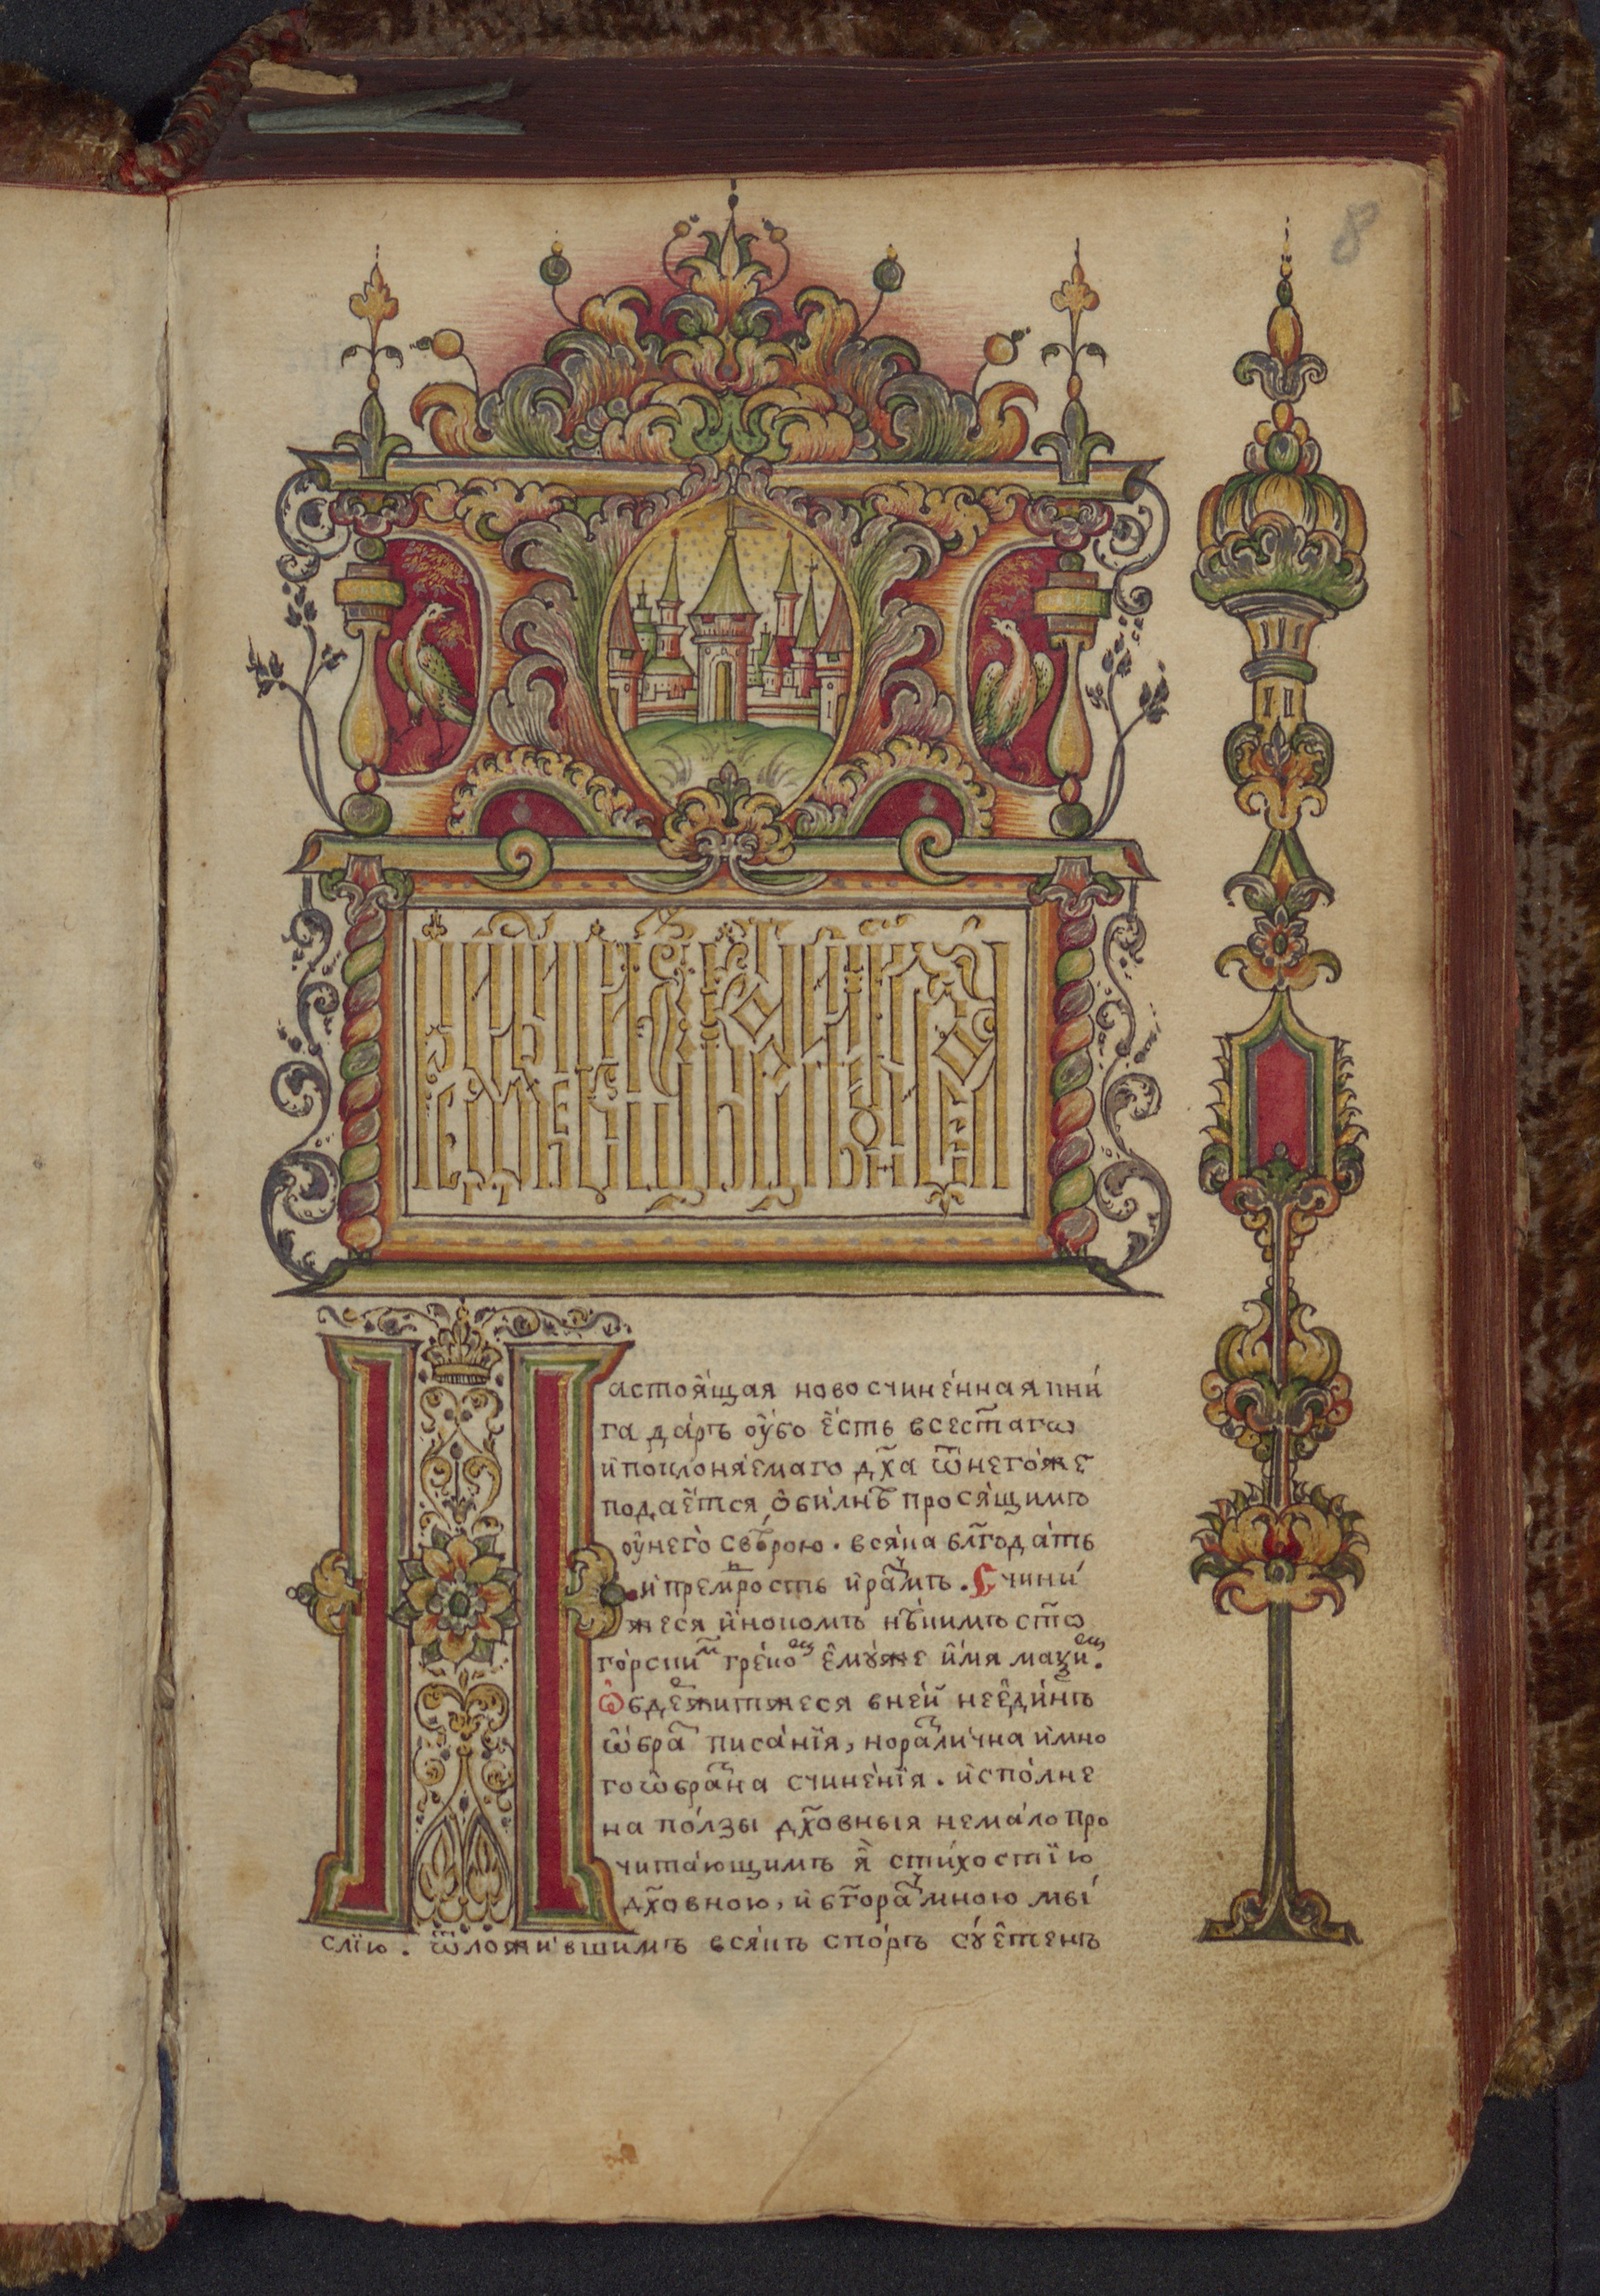 8
Настоѧ́щаѧ новосчине́ннаѧ кни́
га да́ръ ᲂу҆́бо є҆́сть всест҃агѡ
и҆ поклонѧ́емаго дх҃а ѿ негѡ́же
подае́тсѧ ѻ҆би́лнѣ просѧ́щимъ
ᲂу҆ негѡ̀ свѣ́рою. всѧ́ка бл҃года́ть
и҆ прем҃рость и҆ ра́ꙁꙋмъ. Счини́
жесѧ и҆нокомъ нѣ́кимъ ст҃о
го́рскимъ гре́комъ є҆мꙋ́же и҆́мѧ маѯи́мъ.
Ѡ҆бдержитжесѧ вне́й не є҆ди́нъ
ѡ҆́браꙁ писа́нїѧ, но раꙁли́чна и҆ мно
гоѡ҆бра́ꙁна счине́нїѧ. и҆спо́лне
на по́лзы дх҃овныѧ нема́ло про
чита́ющимъ ѧ҆̀ сти́хостїю
дх҃овною, и҆ бг҃ораꙁꙋмною мы́
слїю. ѿложи́вшимъ всѧ́къ спо́ръ сꙋ́етенъ